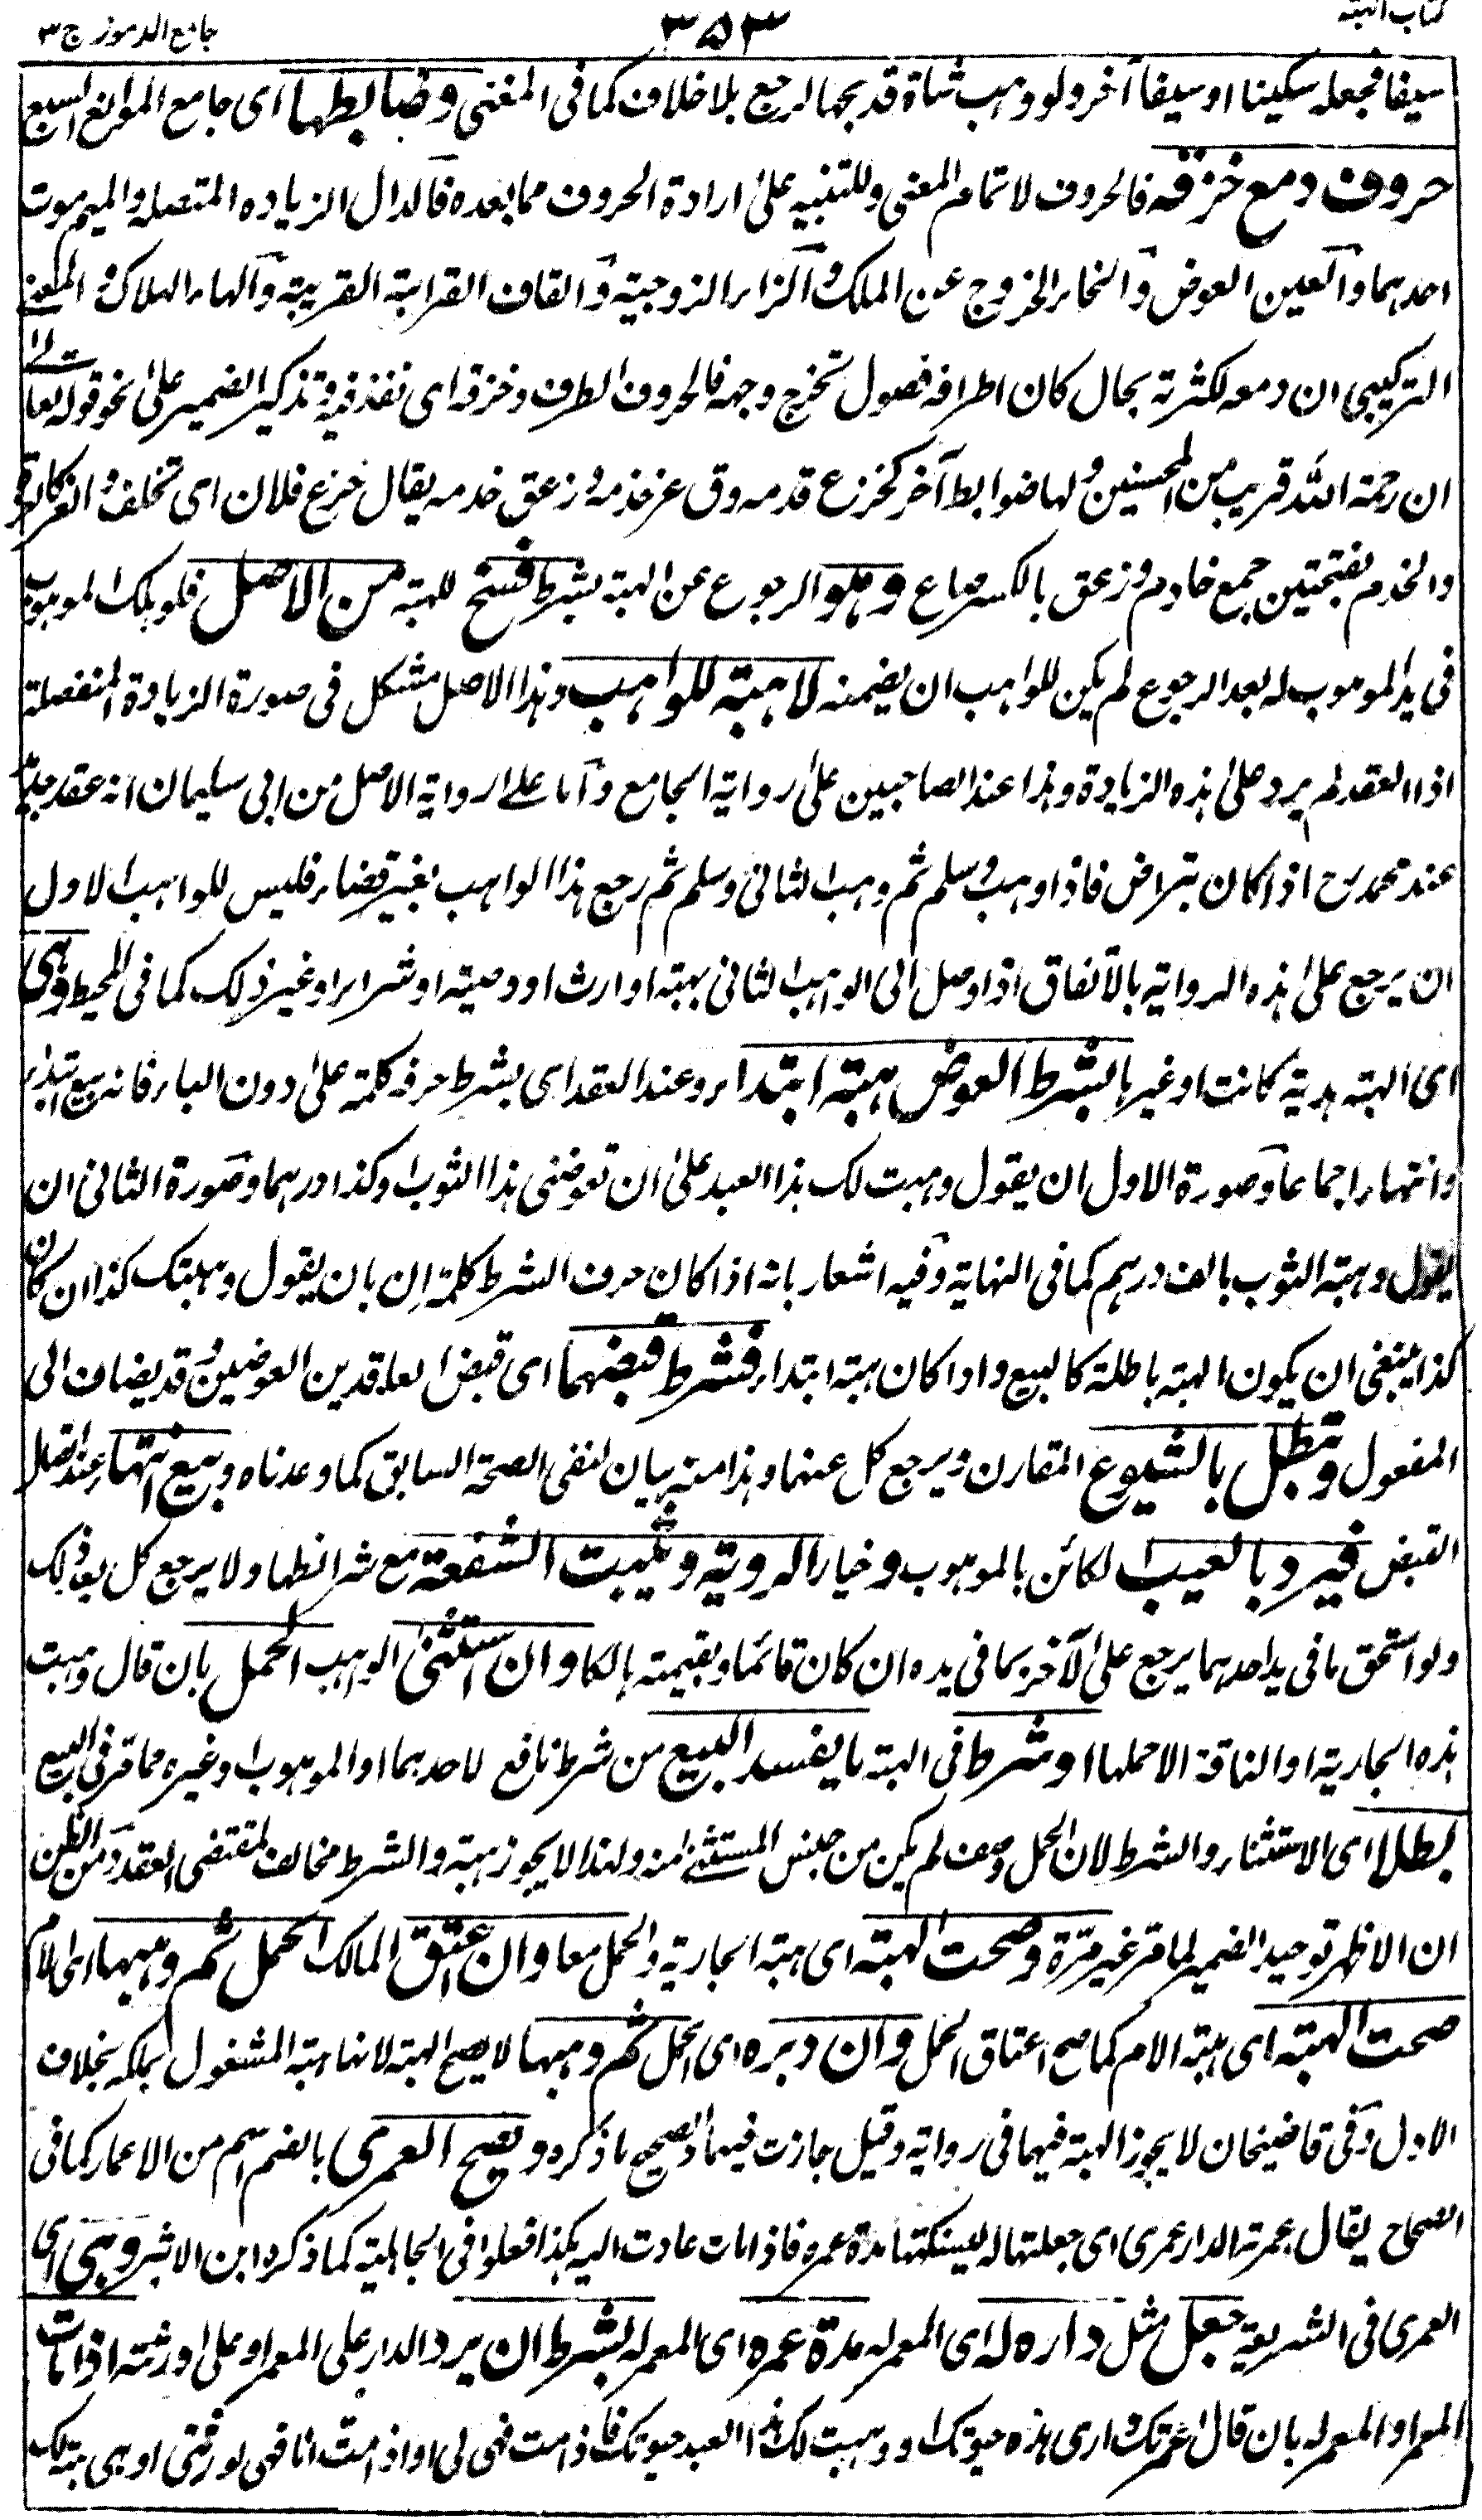 كتاب الهبة
٣٥٣
جامع الرموز ج ٣
سيفا فجعله سكينا او سيفا آخر ولو وهب شاة قد بحها لرجع بلا خلاف كما فى المغنى وضابطها اى جامع الموانع السبع
حروف دمع خزقه فالحروف لاتمام المعنى وللتنبيه على ارادة الحروف مما بعده فالدال الزياده المتصله والميم موت
احدهما والعين العوض والخاء الخروج عن الملك والزاء الزوجية والقاف القرابة القريبة والهاء الهلاك والمعنى
التركيبى ان دمعه لكثرته بحال كان اطرافه فصول تخرج وجهه فالحروف الطرف وخزقه اى نفذ فيه وتذكير الضمير على نحو قوله تعالى
ان رحمة الله قريب من المحسنين ولها ضوابط آخر كخزع قدمه وق عز خذمه وزعق خدمه يقال خزع فلان اى تخلف
والخدم بفتحتين جمع خادم وزعق بالكسر صاع وهو الرجوع عن الهبة بشرط فسخ للهبة من الاصل فلو هلك الموهوب
فى يد الموهوب له بعد الرجوع لم يكن للواهب ان يضمنه لا هبة للواهب وهذا الاصل مشكل فى صورة الزيادة المنفصلة
اذا العقد لم يرد على هذه الزيادة وهذا عند الصاحبين على رواية الجامع واما على رواية الاصل من ابى سليمان انه عقد جديد
عند محمد رح اذا كان بتراض فاذا وهب وسلم ثم وهب الثانى وسلم ثم رجع هذا الواهب بغير قضاء فليس للواهب الاول
ان يرجع على هذه الرواية بالاتفاق اذا وصل الى الواهب الثانى بهبة او ارث او وصية او شراء او غير ذلك كما فى المحيط وهى
اى الهبة هدية كانت او غيرها بشرط العوض هبة ابتداء وعند العقد اى بشرط حرفه كلمة على دون الباء فانه بيع ابتداء
وانتهاء اجماعا وصورة الاول ان يقول وهبت لك هذا العبد على ان تعوضنى هذا الثوب وكذا درهما وصورة الثانى ان
يقول وهبته الثوب بالف درهم كما فى النهاية وفيه اشعار بانه اذا كان حرف الشرط كلمة ان بان يقول وهبتك كذا ان كان
كذا ينبغى ان يكون الهبة باطلة كالبيع واذا كان هبة ابتداء فشرط قبضهما اى قبض العاقدين العوضين وقد يضاف الى
المفعول وتبطل بالشيوع المقارن ويرجع كل عنها وهذا منه بيان لنفى الصحة السابق كما وعدناه وبيع انتهاء عند اتصال
القبض فيرد بالعيب الكائن بالموهوب وخيار الروية وتثبت الشفعة مع شرائطها ولا يرجع كل بعد ذلك
ولو استحق ما فى يد احدهما يرجع على الآخر بما فى يده ان كان قائما وبقيمته هالكا وان استثنى الواهب الحمل بان قال وهبت
هذه الجارية او الناقة الا حملها او شرط فى الهبة ما يفسد البيع من شرط نافع لاحدهما او الموهوب وغيره مما قر فى البيع
بطلا اى الاستثناء والشرط لان الحمل وصف لم يكن من جنس المستثنى منه ولهذا لا يجوز هبته والشرط مخالف لمقتضى العقد ومن الظن
ان الاظهر توحيد الضمير لما مر غير مرة وصحت الهبة اى هبة الجارية والحمل معا وان عتق المالك الحمل ثم وهبها اى الام
صحت الهبة اى هبة الام كما صح اعتاق الحمل وان دبره اى الحمل ثم وهبها لا يصح الهبة لانها هبة المشغول بملكه بخلاف
الاول وفى قاضيخان لا يجوز الهبة فيهما فى رواية وقيل جازت فيهما والصحيح ما ذكره ويصح العمرى بالضم اسم من الاعمار كما فى
الصحاح يقال عمرته الدار عمرى اى جعلتها له ليسكنها مدة عمره فاذا مات عادت اليه هكذا فعلوا فى الجاهلية كما ذكره ابن الاثير وهى اى
العمرى فى الشريعة جعل مثل داره له اى المعمر له مدة عمره اى المعمر له بشرط ان يرد الدار على المعمر او على ورثته اذا مات
المعمر او المعمر له بان قال اعمرتك دارى هذه حيوتك او وهبت لك هذا العبد حيوتك فاذا مت فهى لى او اذا مت انا فهى لورثتى او هى هبة لك